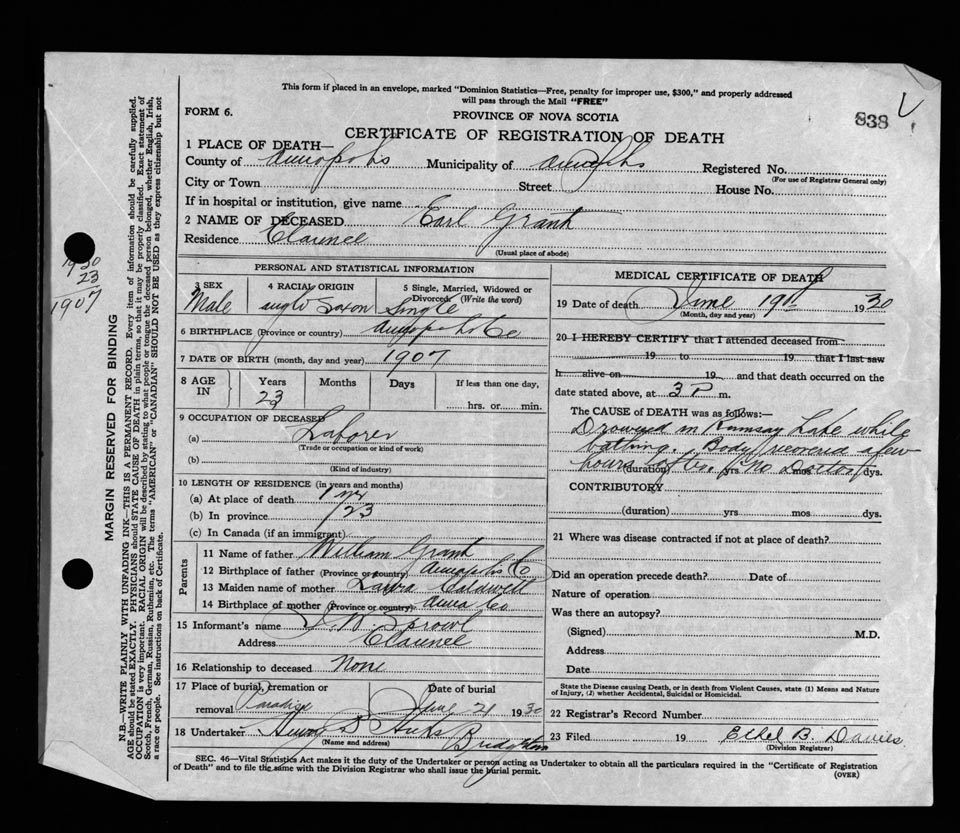 This form if placed in an envelope, marked "Dominion Statistics—Free, penalty for improper use, $300," and properly addressed
will pass through the Mail "FREE"
FORM 6.
PROVINCE OF NOVA SCOTIA
838
CERTIFICATE OF REGISTRATION OF DEATH
1 PLACE OF DEATH—
County of Annapolis Municipality of Annapolis Registered No.
(For use of Registrar General only)
City or Town Street House No.
If in hospital or institution, give name
2 NAME OF DECEASED Earl Grant
Residence Clarence
(Usual place of abode)
PERSONAL AND STATISTICAL INFORMATION
3 SEX 4 RACIAL ORIGIN 5 Single, Married, Widowed or
Divorced (Write the word)
Male Anglo Saxon Single
6 BIRTHPLACE (Province or country) Annapolis Co
7 DATE OF BIRTH (month, day and year) 1907
8 AGE IN Years Months Days If less than one day,
23 hrs. or min.
9 OCCUPATION OF DECEASED
(a) Laborer
(Trade or occupation or kind of work)
(b)
(Kind of industry)
10 LENGTH OF RESIDENCE (in years and months)
(a) At place of death 1
(b) In province 23
(c) In Canada (if an immigrant)
Parents
11 Name of father William Grant
12 Birthplace of father (Province or country) Annapolis Co
13 Maiden name of mother
14 Birthplace of mother (Province or country) Anna Co
15 Informant's name Sprowl
Address Clarence
16 Relationship to deceased None
17 Place of burial, cremation or Date of burial
removal Paradise June 21 1930
18 Undertaker Hicks Bridgetown
(Name and address)
MEDICAL CERTIFICATE OF DEATH
19 Date of death June 19th 1930
(Month, day and year)
20 I HEREBY CERTIFY that I attended deceased from
19 to 19 that I last saw
h alive on 19 and that death occurred on the
date stated above, at 3 P m.
The CAUSE of DEATH was as follows:—
Drowned in Rumsay Lake while
bathing. Body recovered a few
hours after. No Doctor
(duration) yrs mos dys.
CONTRIBUTORY
(duration) yrs mos dys.
21 Where was disease contracted if not at place of death?
Did an operation precede death? Date of
Nature of operation
Was there an autopsy?
(Signed) M.D.
Address
Date
State the Disease causing Death, or in death from Violent Causes, state (1) Means and Nature
of Injury, (2) whether Accidental, Suicidal or Homicidal.
22 Registrar's Record Number
23 Filed 19 Ethel B. Davies
(Division Registrar)
SEC. 46—Vital Statistics Act makes it the duty of the Undertaker or person acting as Undertaker to obtain all the particulars required in the "Certificate of Registration
of Death" and to file the same with the Division Registrar who shall issue the burial permit.
(OVER)
1930
23
1907
MARGIN RESERVED FOR BINDING
N.B.—WRITE PLAINLY WITH UNFADING INK—THIS IS A PERMANENT RECORD. Every item of information should be carefully supplied.
AGE should be stated EXACTLY. PHYSICIANS should STATE CAUSE OF DEATH in plain terms, so that it may be properly classified. Exact statement of
OCCUPATION is very important. RACIAL ORIGIN will be described by stating to what people or tongue the deceased person belonged, whether English, Irish,
Scotch, French, German, Russian, Ruthenian, etc. The terms "AMERICAN" or "CANADIAN" SHOULD NOT BE USED as they express citizenship but not
a race or people. See instructions on back of Certificate.